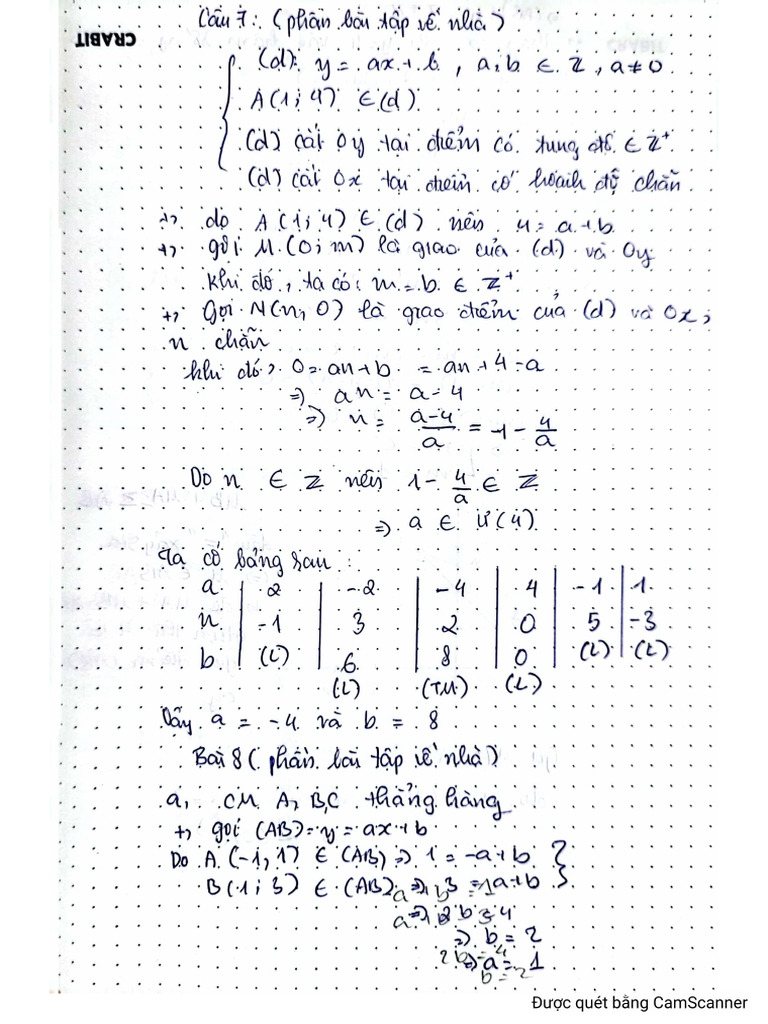 CRABIT
Câu 7: (phần bài tập về nhà)
(d): y = ax + b, a, b ∈ Z, a ≠ 0
A(1; 4) ∈ (d)
(d) cắt Oy tại điểm có tung độ ∈ Z⁺
(d) cắt Ox tại điểm có hoành độ chẵn
+, do A(1; 4) ∈ (d) nên 4 = a + b
+, gọi M(0; m) là giao của (d) và Oy
khi đó, ta có: m = b ∈ Z⁺
+, Gọi N(n, 0) là giao điểm của (d) và Ox,
n chẵn
khi đó, 0 = an + b = an + 4 - a
=> an = a - 4
=> n = (a-4)/a = 1 - 4/a
Do n ∈ Z nên 1 - 4/a ∈ Z
=> a ∈ Ư(4)
Ta có bảng sau:
a | 2 | -2 | -4 | 4 | -1 | 1
n | -1 | 3 | 2 | 0 | 5 | -3
b | (L) | 6 | 8 | 0 | (L) | (L)
(L) (TM) (L)
Vậy a = -4 và b = 8
Bài 8 (phần bài tập về nhà)
a, CM A, B, C thẳng hàng
+, gọi (AB) = y = ax + b
Do A(-1, 1) ∈ (AB) => 1 = -a + b
B(1; 3) ∈ (AB) => 3 = 1a + b
=> b = 2
=> a = 1
Được quét bằng CamScanner